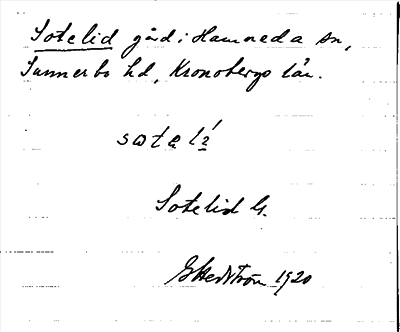 Sotelid gård i Hamneda sn,
Sunnerbo hd, Kronobergs län.
Sotelid G.
Ekedström 1920